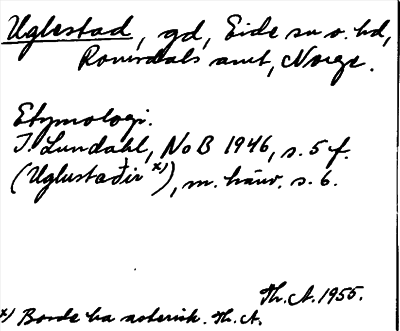 Uglestad, gd, Eide sn o. hd,
Romsdals amt, Norge.
Etymologi.
I. Lundahl, NoB 1946, s. 5 f.
(Uglustaðir x)), m. hänv. s. 6.
Th. A. 1955.
x) Borde ha asterisk. Th. A.